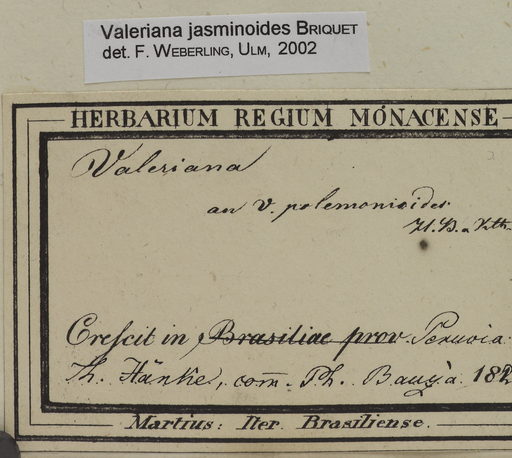 Valeriana jasminoides BRIQUET
det. F. WEBERLING, ULM, 2002
HERBARIUM REGIUM MONACENSE
Valeriana
an V. polemonioides
H. B. a Kth.
Crescit in Brasiliae prov. Peruvia.
Th. Hänke, com̅. Ph. Bauzà 182
Martius: Iter Brasiliense.